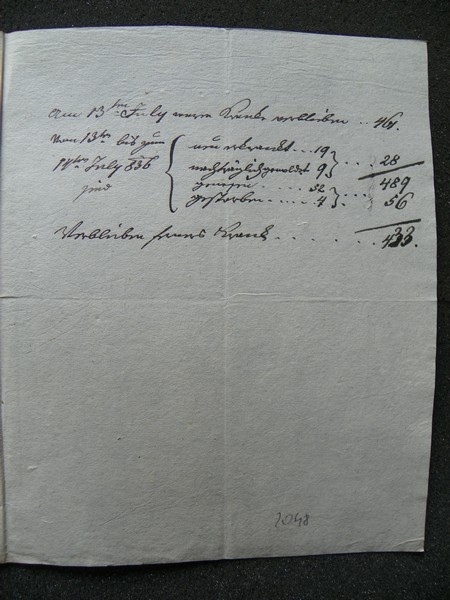 Am 13ten July waren Krank verblieben .. 461.
Vom 13ten bis zum
14ten July 836
sind
neu erkrankt ... 19
nachträglich gemeldet 9 ... 28
489
genesen ..... 52
gestorben ..... 4 ... 56
Verblieben ferners Krank ..... 433.
2048